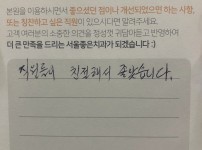 본원을 이용하시면서 좋으셨던 점이나 개선되었으면 하는 사항,
또는 칭찬하고 싶은 직원이 있으시다면 말려주세요.
고객 여러분의 소중한 의견을 정성껏 귀담아듣고 반영하여
더 큰 만족을 드리는 서울좋은치과가 되겠습니다 :)
직원들이 친절해서 좋았습니다.